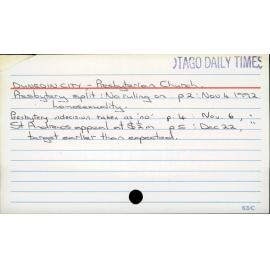 OTAGO DAILY TIMES
DUNEDIN CITY - Presbyterian Church.
Presbytery split: No ruling on p2: Nov 4 1992
homosexuality.
Presbytery indecision taken as 'no' p. 4 Nov. 6, "
St Andrew's appeal at $½m p5: Dec 22, "
target earlier than expected.
53C